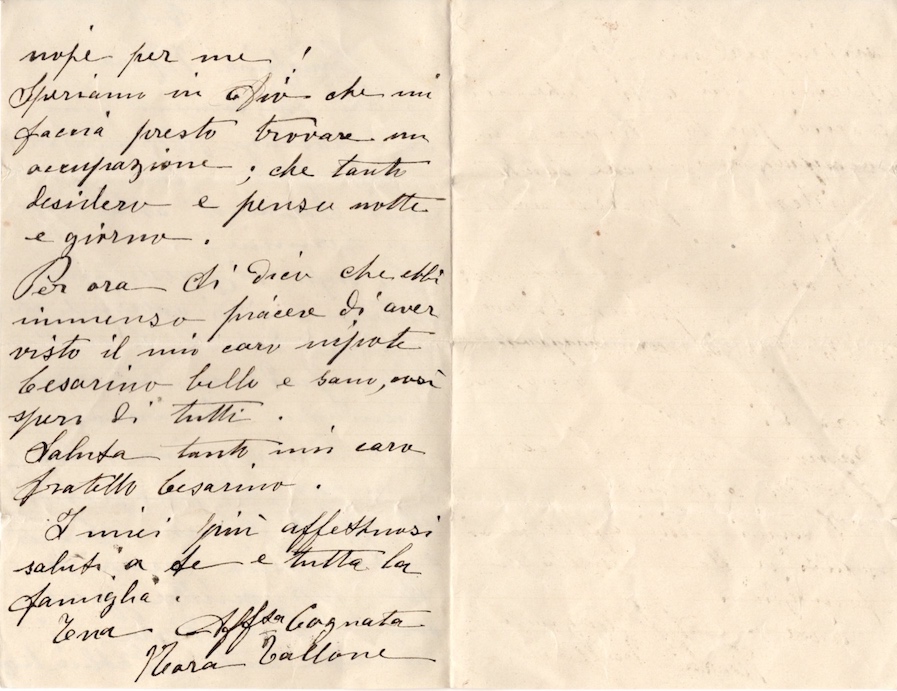 per me !
Speriamo in Dio che mi
faccia presto trovare un
occupazione ; che tanto
desidero e penso notte
e giorno .
Per ora ti dico che ebbi
immenso piacere di aver
visto il mio caro nipote
Cesarino bello e sano, così
spero di tutti .
Saluta tanto mio caro
fratello Cesarino .
I miei più affettuosi
saluti a te e tutta la
famiglia .
Tua Aff.sa Cognata
Nora Tallone